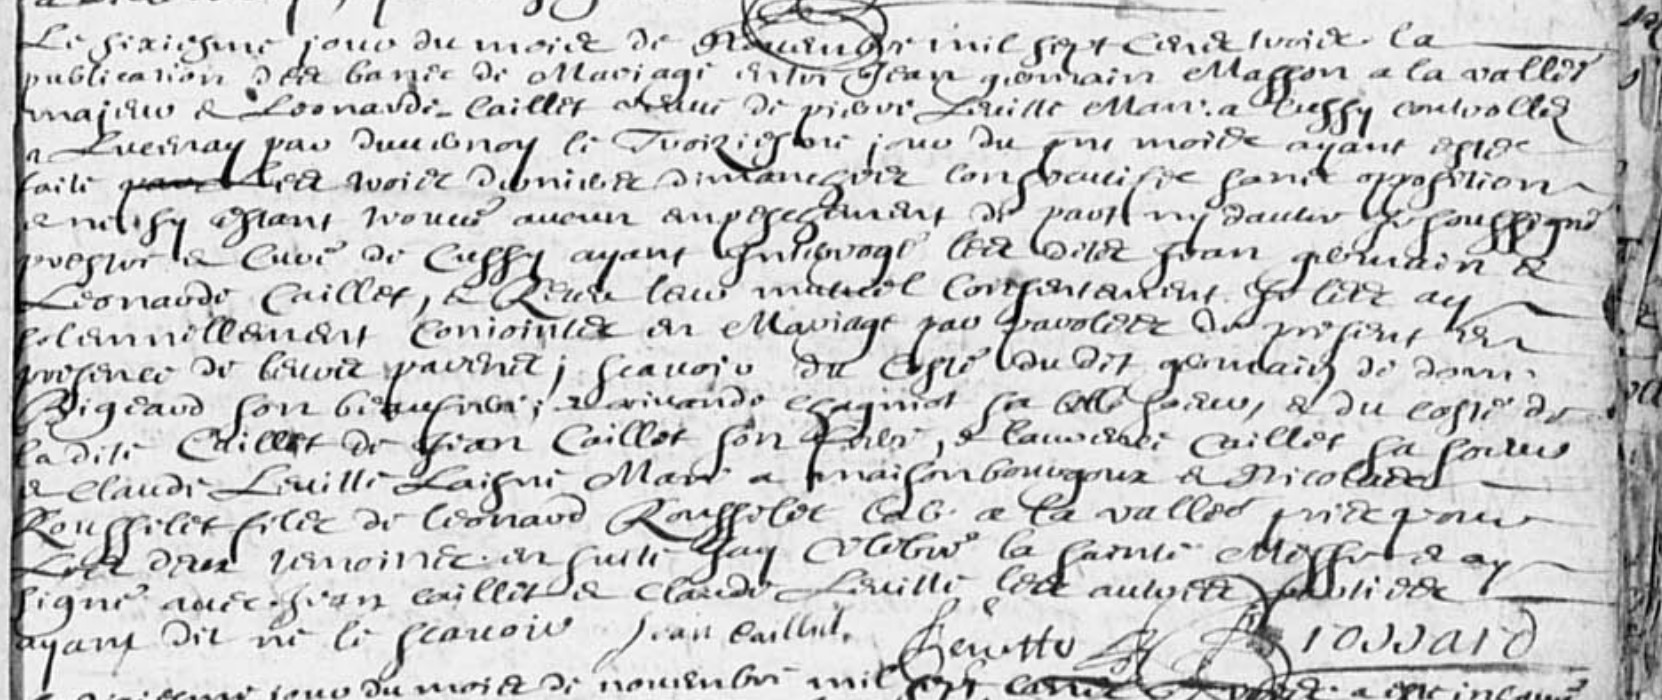 Le sixiesme jour du mois de Novembre mil sept cens trois la
publication des bancs de Mariage entre Jean germain Masson a la vallée
majeur & Leonarde Caillet veuve de pierre Leuitte Man. a Cussy controllez
a Lucenay par le Troiziesme jour du pnt mois ayant estée
faite les trois derniers dimanches consecutifs sans opposition
& ne s'y estant trouué aucun enpeschement de part ny dautre Je soussigné
prestre & Curé de Cussy ayant Interrogé les dits Jean germain &
Leonarde Caillet, & Receu leur mutuel consentement Je les ay
solennellement conjointes en Mariage par parolles de present en
presence de leurs parents; scavoir du costé du dit germain de
son beaufrere; sa belle soeur, & du costé de
ladite Caillet de Jean Caillet son frere, & laurence Caillet sa soeur
& Claude Leuitte Laisné Man a maisonbourgoux & Nicolas
Rousselet fils de leonard Rousselet lab. a la vallée pris pour
Les deux temoins en suitte Jay Celebré la sainte Messe & ay
signé avec Jean caillet & Claude Leuitte les autres parties
ayant dit ne le scavoir Jean Caillet. Leuitte
jour du mois de novembre mil sept cens trois a esté